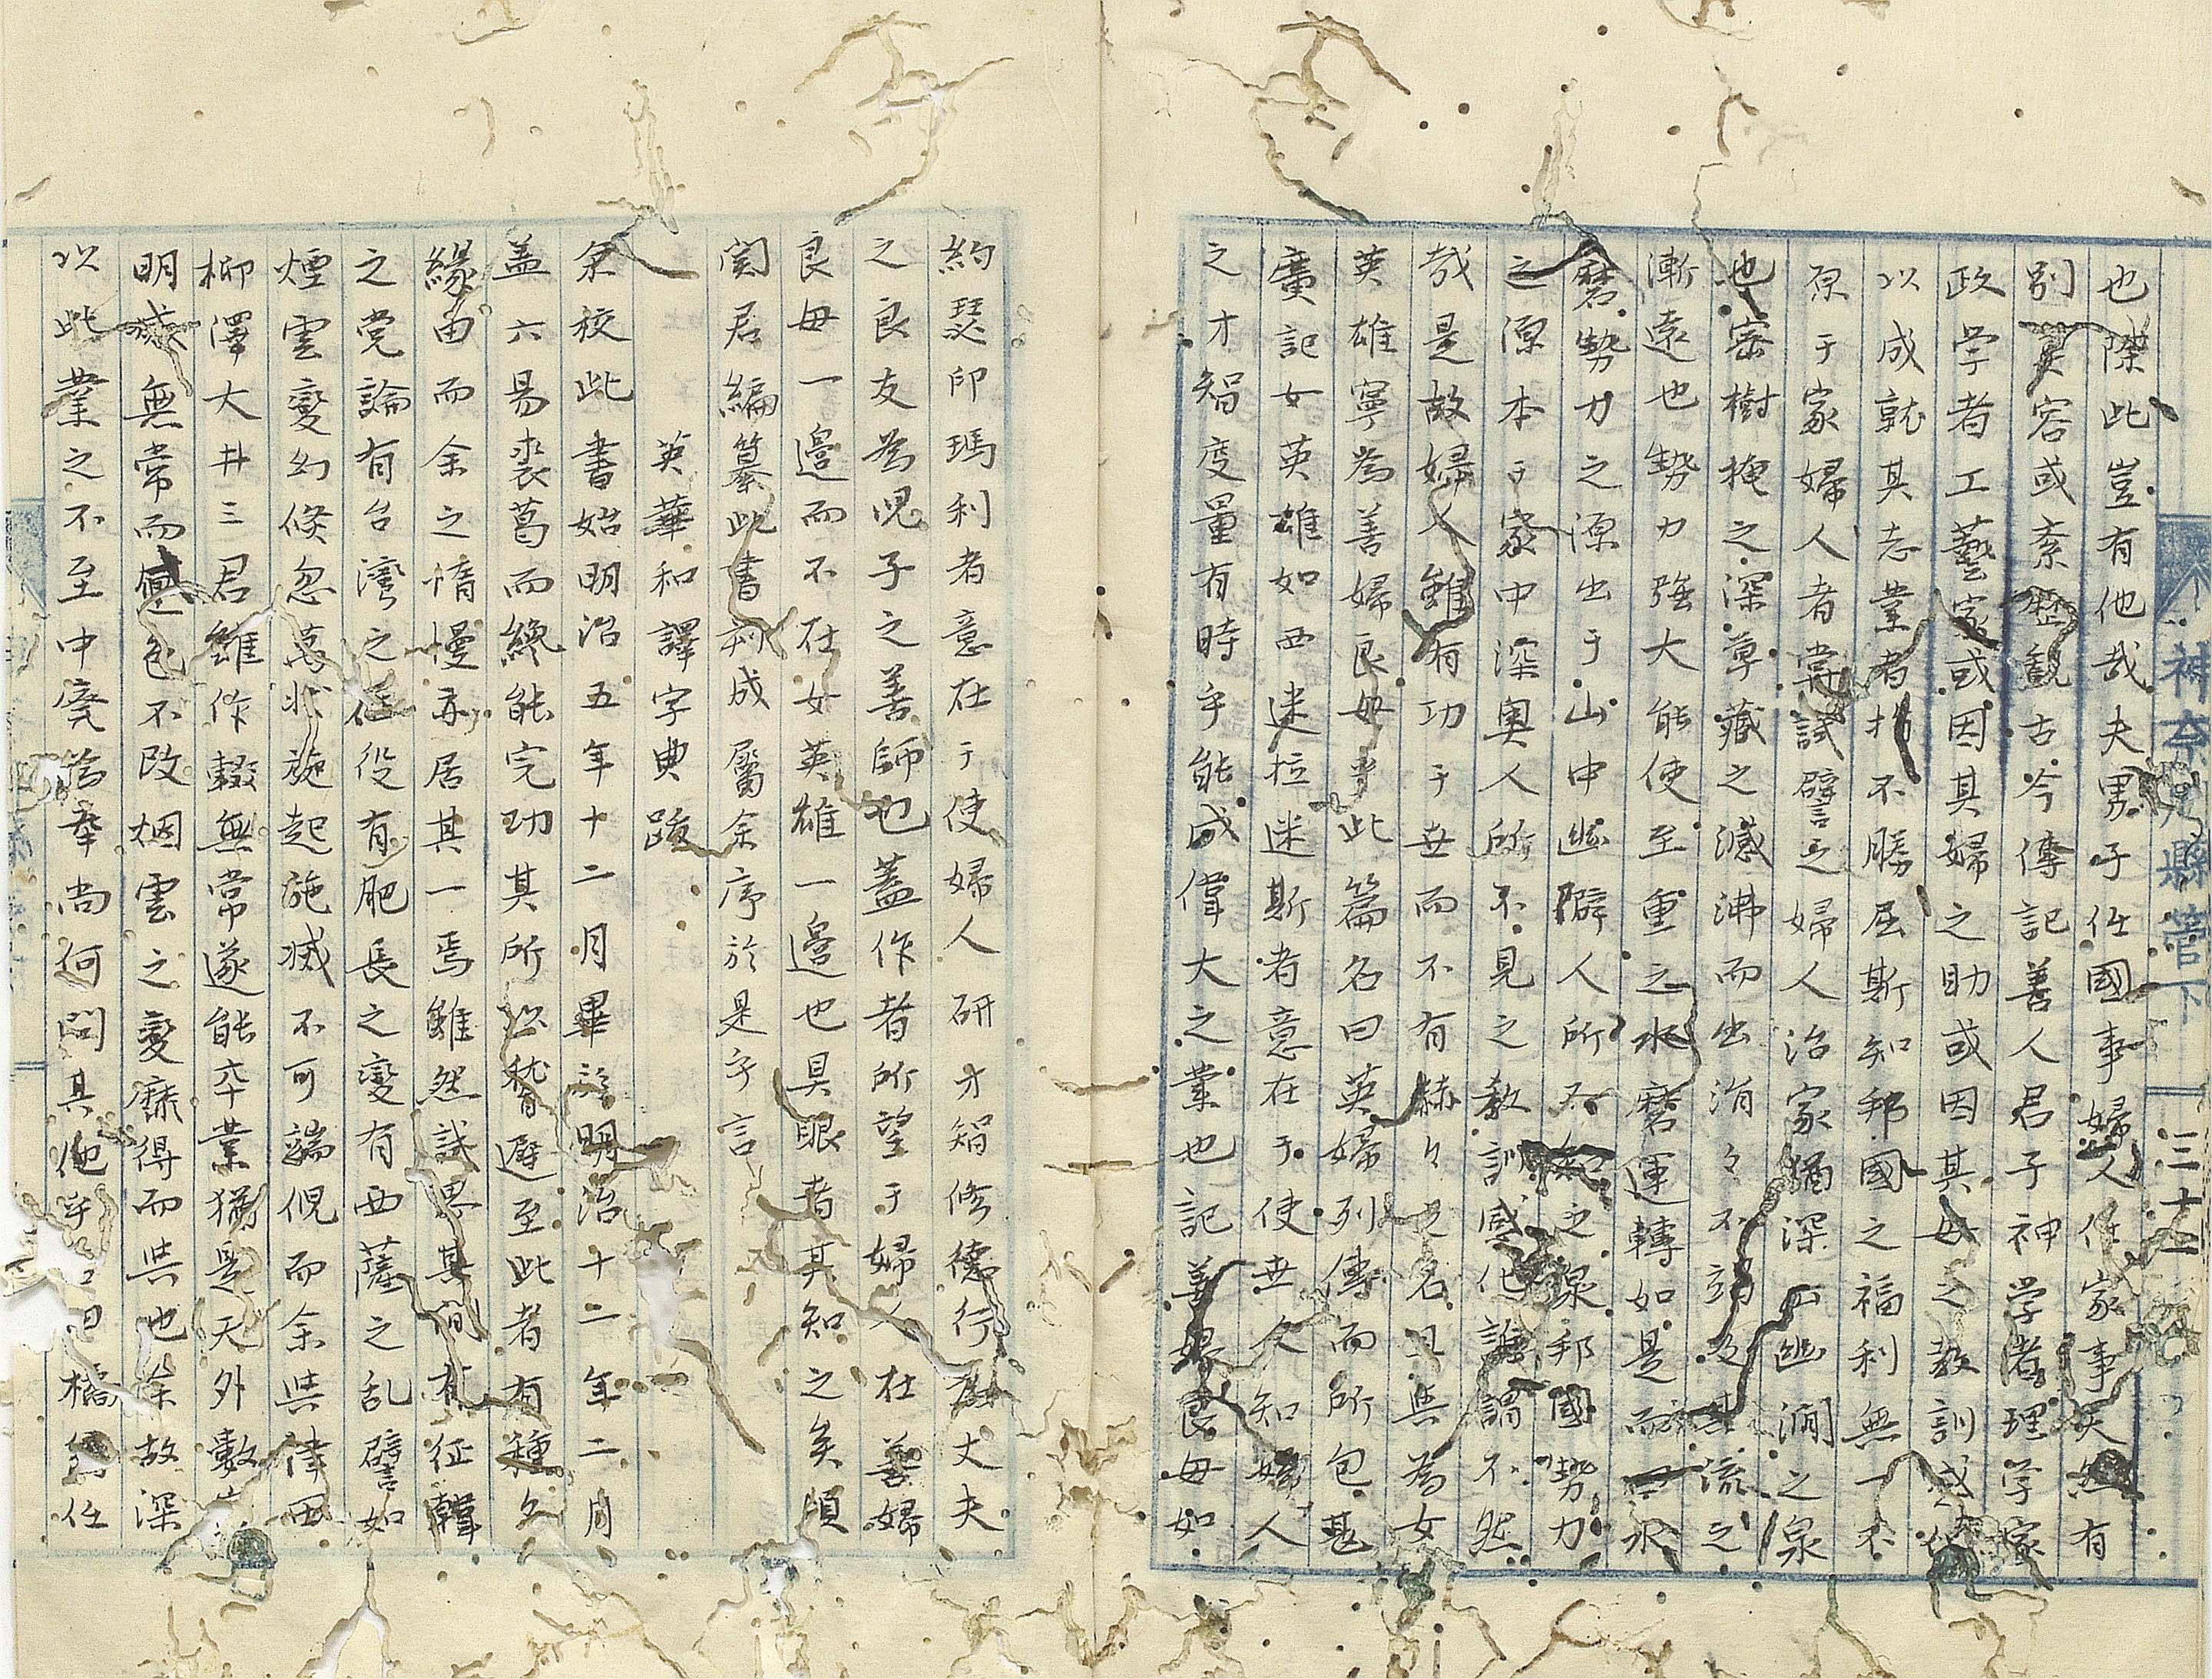 也除此豈有他哉夫男子任國事婦人任家事天然有
別其容或紊歷観古今傳記善人君子神学者理学家
政学者工藝家或因其婦之助或因其母之教訓感化
以成就其志業者指不勝屈斯知邦國之福利無一不
原于家婦人者嘗試譬之婦人治家猶深山幽澗之泉
也密樹掩之深草藏之濫沸而出涓々不竭及其流之
漸遠也勢力強大能使至重之水磨運轉如是而水
磨勢力之源出于山中幽僻人所不知之泉邦國勢力
之源本于家中深奧人所不見之教訓感化誰謂不然
哉是故婦人雖有功于世而不有赫々之名且與為女
英雄寧為善婦良母乎此篇名曰英婦列傳而所包甚
廣記女英雄如西迷拉迷斯者意在于使世人知婦人
之才智度量有時乎能成偉大之業也記善婦良母如
約瑟印瑪利者意在于使婦人研才智修德行為丈夫
之良友為児子之善師也蓋作者所望于婦人在善婦
良母一邊而不在女英雄一邊也具眼者其知之矣頃
関君編纂此書刻成屬余序於是乎言
英華和譯字典跋
余校此書始明治五年十二月畢於明治十二年二月
盖六易裘葛而纔能完功其所以稽遲至此者有種々
緣由而余之惰慢亦居其一焉雖然試思其間有征韓
之党論有台湾之征役有肥長之變有西薩之乱譬如
煙雲變幻倏忽萬状旋起旋滅不可端倪而余與津田
柳澤大井三君雖作輟無常遂能卒業猶是天外數峯
明滅無常而山色不改烟雲之變靡得而與也余故深
以此業之不至中廃為幸尚何問其他乎 曰橘為任